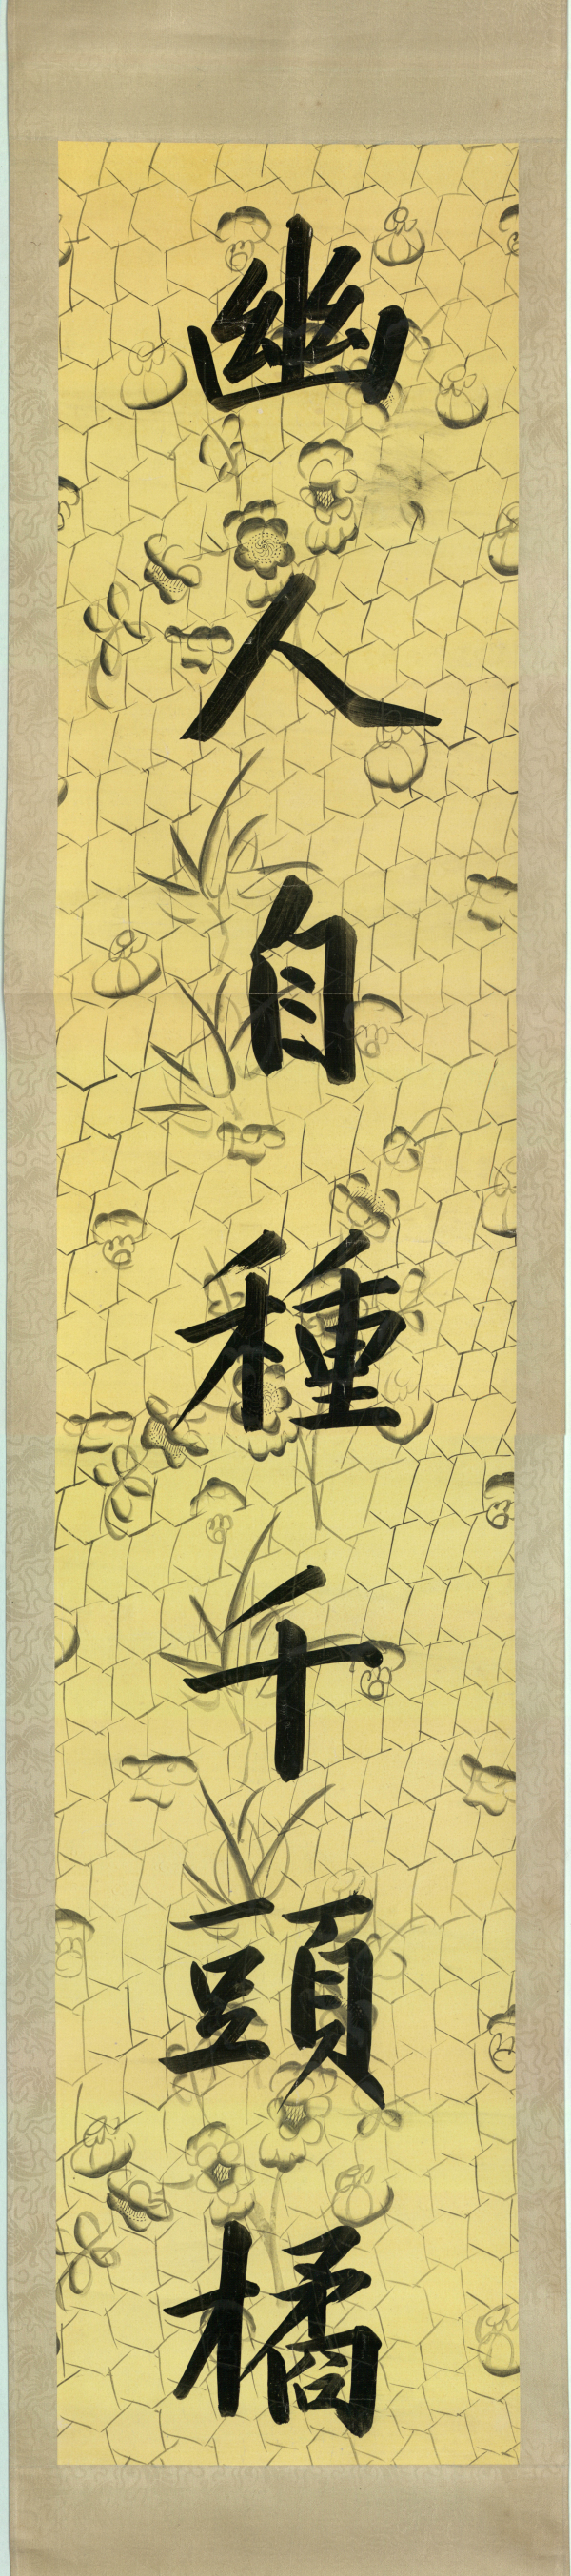 幽人自種千頭橘